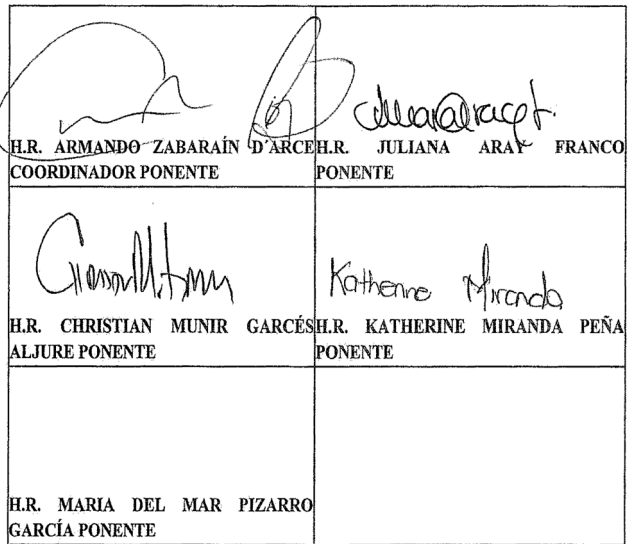 H.R. ARMANDO ZABARAÍN D´ARCE
COORDINADOR PONENTE
H.R. JULIANA ARAY FRANCO
PONENTE
H.R. CHRISTIAN MUNIR GARCÉS
ALJURE PONENTE
Katherine Miranda
H.R. KATHERINE MIRANDA PEÑA
PONENTE
H.R. MARIA DEL MAR PIZARRO
GARCÍA PONENTE